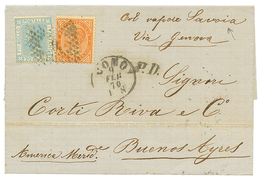 Col vapore Savoia
Via Genova
COMO
FEB
70
P.D.
Signori
Corti Riva e Cº
Buenos Ayres
America Merid.